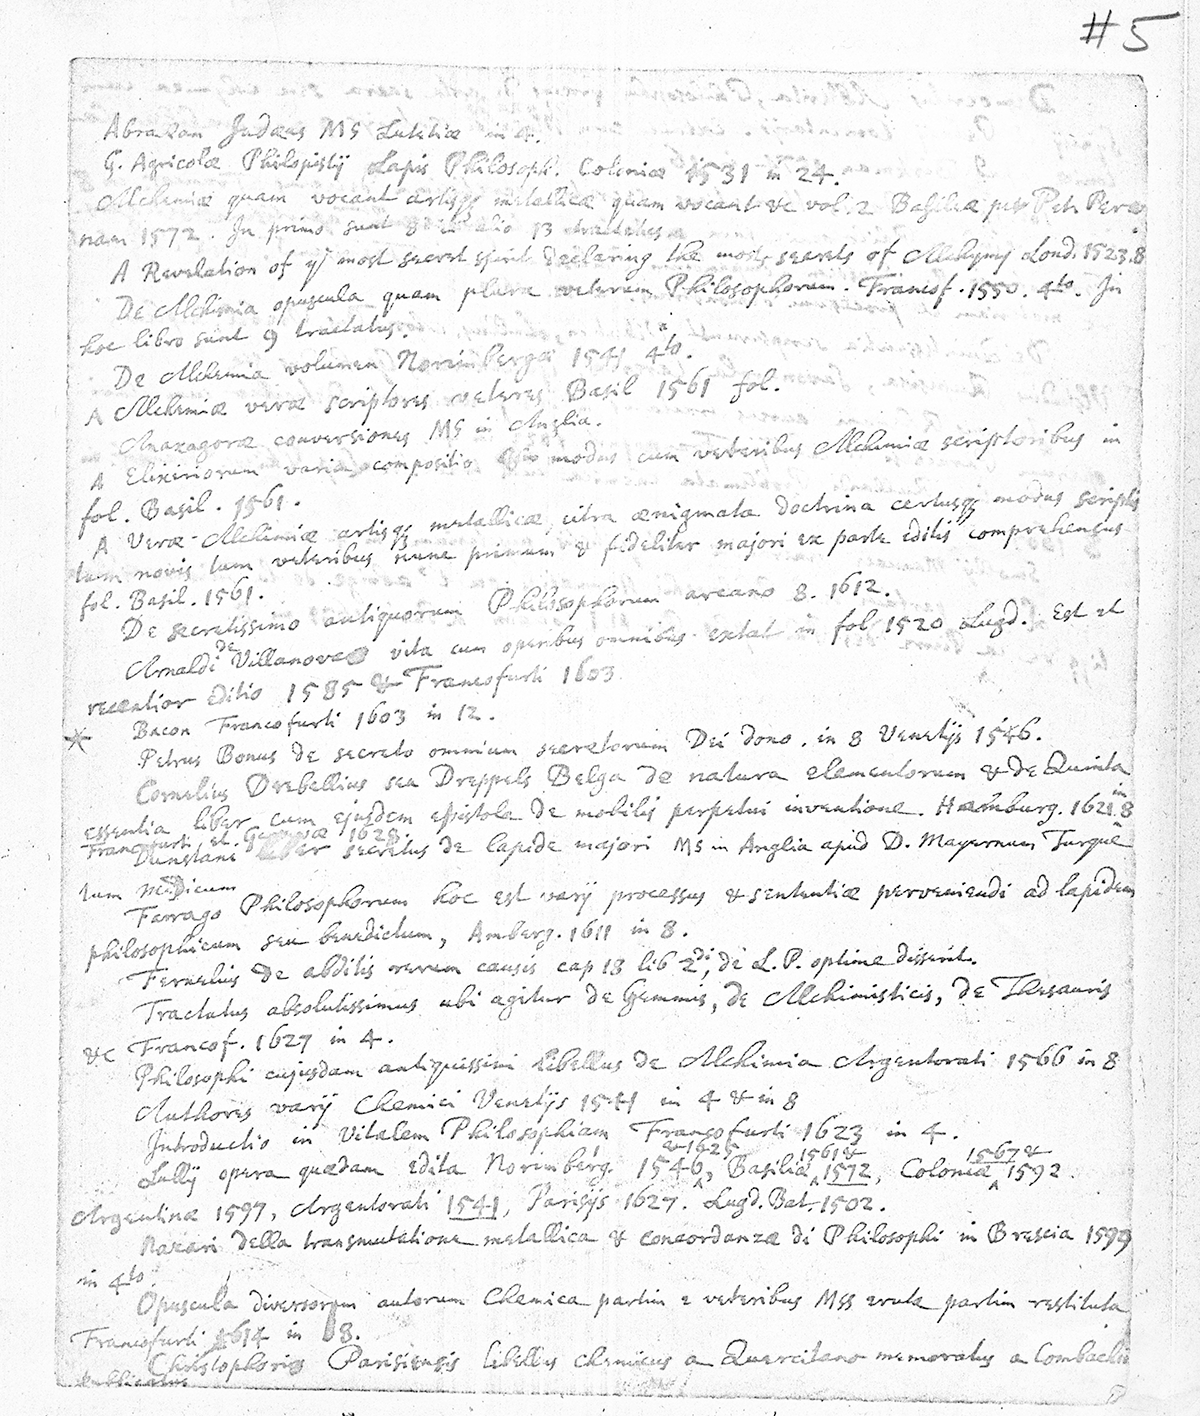 #5
Abraham Judæus MS Lutetiæ in 4.
G. Agricolæ Philopistij Lapis Philosoph. Coloniæ 1531 in 24.
Alchemiæ quam vocant artisq metallicæ quam vocant &c vol. 2 Basileæ per Pet. Peræ
nam 1572. In primo sunt 8 in alio 13 tractatus
A Revelation of ye most secret spirit declaring the most secrets of Alchymy Lond. 1523. 8
De Alchimia opuscula quam plura veterum Philosophorum. Francof. 1550. 4to. In
hoc libro sunt 9 tractatus.
De Alchemia volumen Norimbergæ 1541 4to.
A Alchemiæ veræ scriptores veteres Basil 1561 fol.
Anaxagoræ conversiones MS in Anglia.
A Elixiriorum varia compositio & modus cum veteribus Alchemiæ scriptoribus in
fol. Basil. 1561.
A Veræ Alchemiæ artisq metallicæ, citra ænigmata doctrina certusq modus scriptis
tum novis tum veteribus nunc primum & fideliter majori ex parte editis comprehensus
fol. Basil. 1561.
De secretissimo antiquorum Philosophorum arcano 8. 1612.
Arnaldi de Villanova vita cum operibus omnibus extat in fol 1520 Lugd. Est et
recentior editio 1585 & Francofurti 1603
Bacon Francofurti 1603 in 12.
* Petrus Bonus de secreto omnium secretorum Dei dono. in 8 Venetijs 1546.
Cornelius Drebellius seu Dreppels Belga de natura elementorum & de Quinta
essentia liber cum ejusdem epistola de mobilis perpetui inventione. Hamburg. 1621 in 8
Francofurti et Genevæ 1628
Dunstani secretus de lapide majori MS in Anglia apud D. Mayernum Turque
tum Medicum
Farrago Philosophorum hoc est varij processus & sententiæ perveniendi ad lapidem
philosophicum seu benedictum, Amberg. 1611 in 8.
Fernelius de abditis rerum causis cap 18 lib 2di, de L.P. optime disserit.
Tractatus absolutissimus ubi agitur de Gemmis, de Alchimisticis, de Thesauris
&c Francof. 1627 in 4.
Philosophi cujusdam antiquissimi libellus de Alchimia Argentorati 1566 in 8
Authores varij Chemici Venetijs 1541 in 4 & in 8
Introductio in Vitalem Philosophiam Francofurti 1623 in 4.
& 1625 1561 & 1567 &
Lullij opera quædam edita Norimberg. 1546, Basiliæ 1572, Coloniæ 1592.
Argentinæ 1597, Argentorati 1541, Parisijs 1627. Lugd. Bat. 1502.
Nazari della transmutatione metallica & concordanza di Philosophi in Brescia 1599
in 4to.
Opuscula diversorum autorum Chemica partim e veteribus Mss eruta partim restituta
Francofurti 1614 in 8.
Christophorus Parisiensis libellus chemicus a Quercitano memoratus a Combachio
publicatus